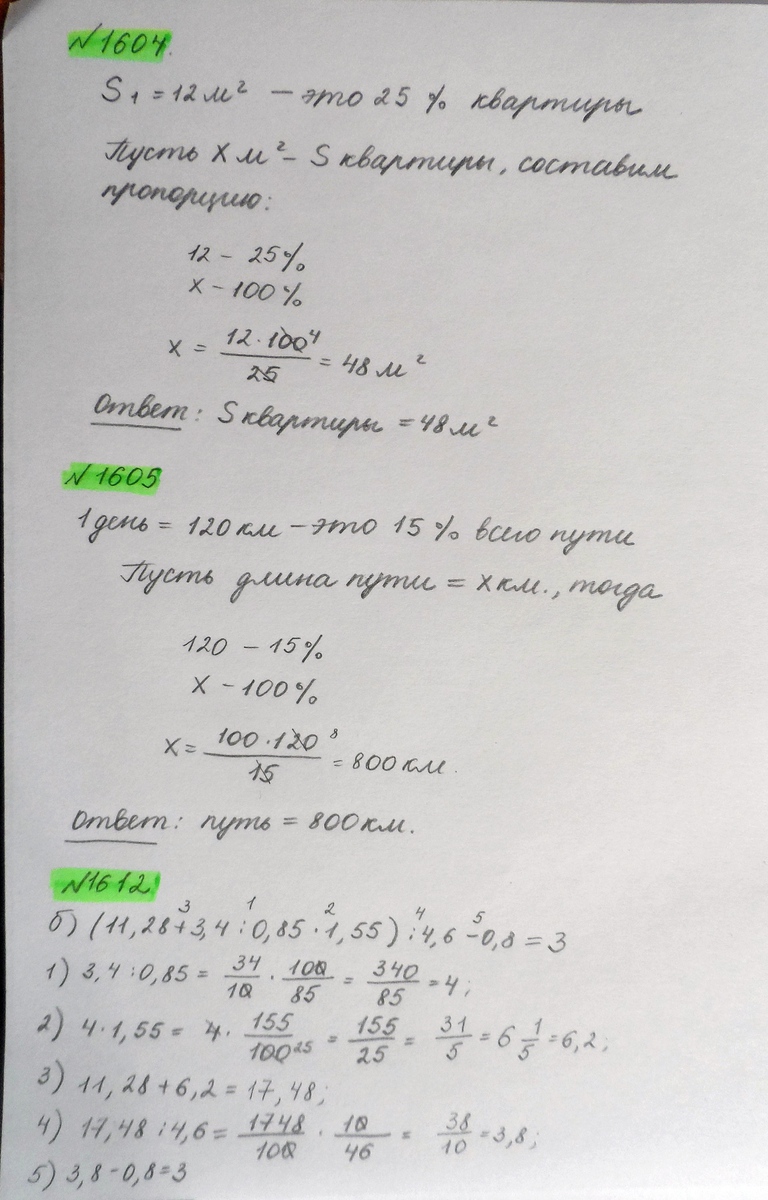 №1604.
S₁ = 12 м² – это 25 % квартиры
Пусть X м² – S квартиры, составим
пропорцию:
12 – 25%
X – 100%
X = (12 · 100 ⁴)/25 = 48 м²
Ответ: S квартиры = 48 м²
№1605
1 день = 120 км – это 15 % всего пути
Пусть длина пути = X км., тогда
120 – 15%
X – 100%
X = (100 · 120 ⁸)/15 = 800 км.
Ответ: путь = 800 км.
№1612
3 1 2 4 5
б) (11,28 + 3,4 : 0,85 · 1,55) : 4,6 – 0,8 = 3
1) 3,4 : 0,85 = 34/10 · 100/85 = 340/85 = 4;
2) 4 · 1,55 = 4 · 155/100 ²⁵ = 155/25 = 31/5 = 6 1/5 = 6,2;
3) 11,28 + 6,2 = 17,48;
4) 17,48 : 4,6 = 1748/100 · 10/46 = 38/10 = 3,8;
5) 3,8 – 0,8 = 3